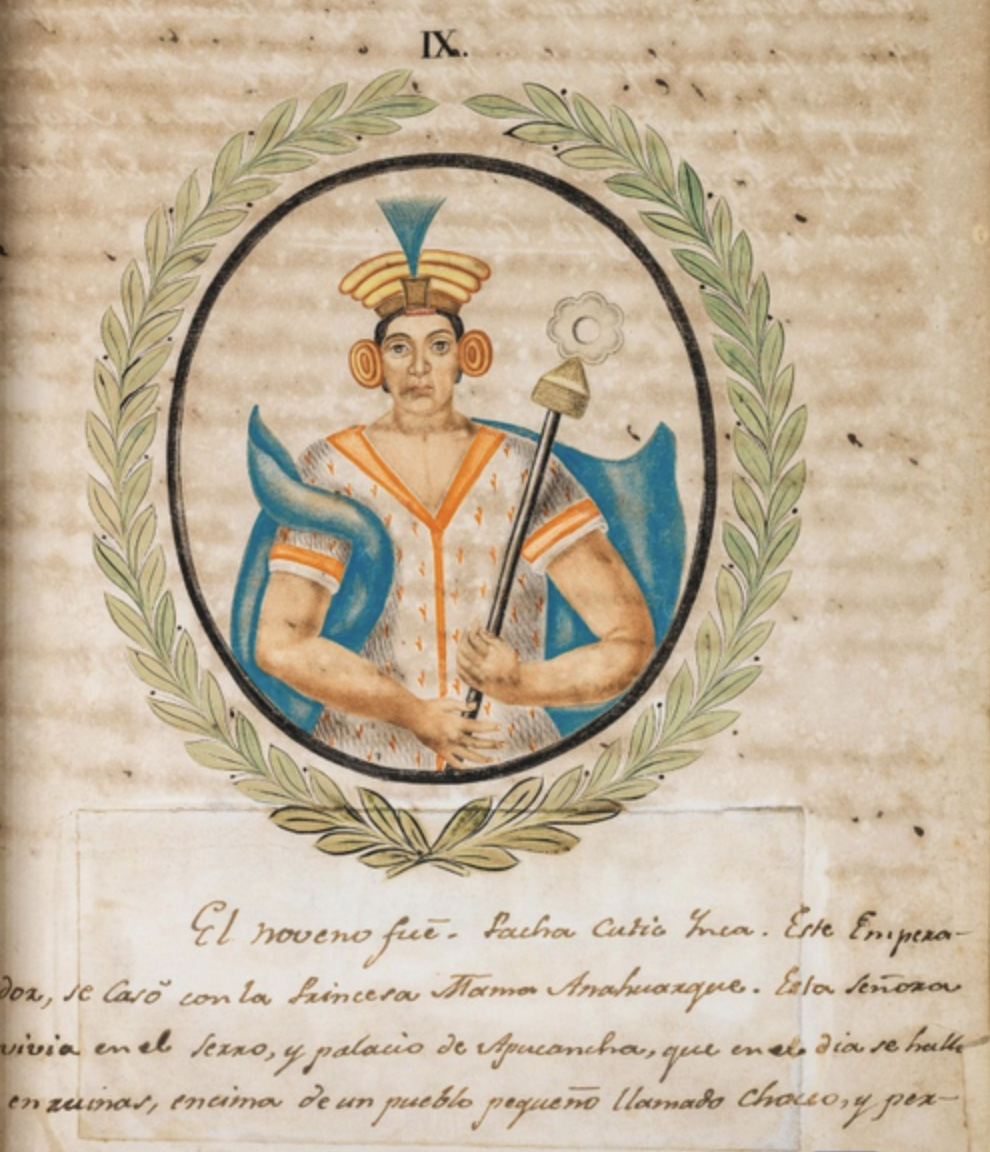 IX.
El noveno fuē. Pacha Cutic Ynca. Este Empera-
dor, se Casó con la Princesa Mama Anahuarque. Esta señora
vivia en el Serro, y palacio de Apucancha, que en el dia se halla
en ruinas, encima de un pueblo pequeño llamado Choco, y per-